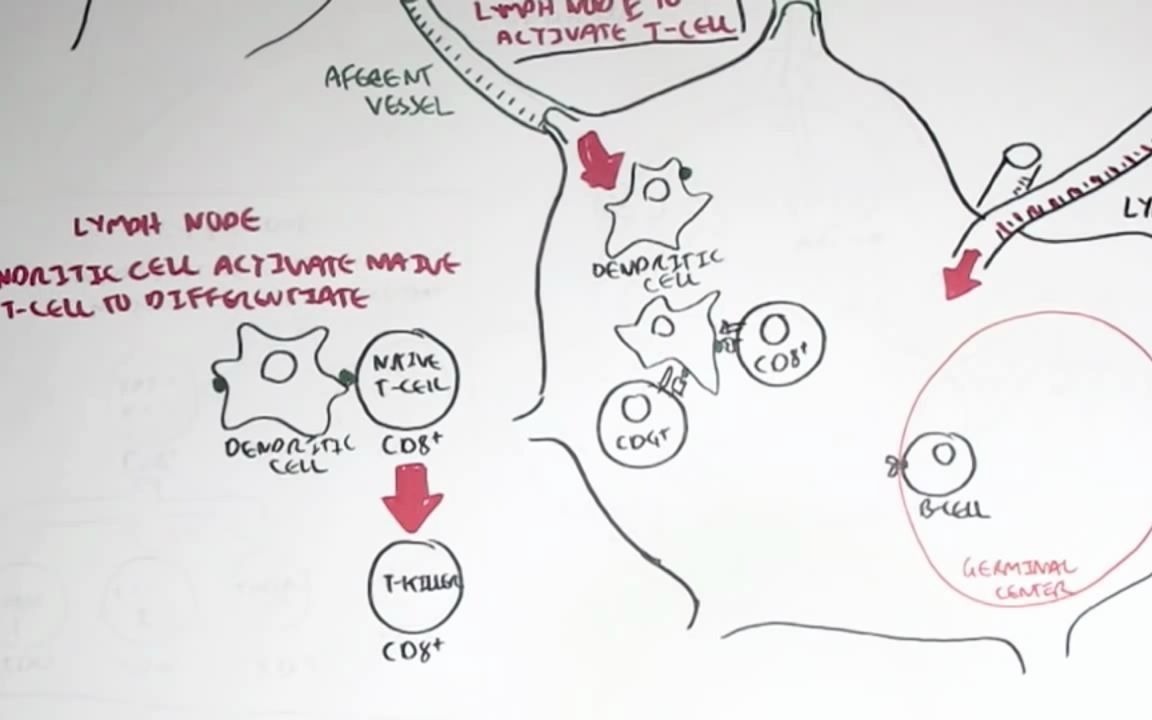 LYMPH NODE TO
ACTIVATE T-CELL
AFERENT
VESSEL
LY
LYMPH NODE
NDRITIC CELL ACTIVATE NAIVE
T-CELL TO DIFFERENTIATE
DENDRITIC
CELL
NAIVE
T-CELL
CD8+
DENDRITIC
CELL
CD8+
CD4+
B-CELL
GERMINAL
CENTER
T-KILLER
CD8+